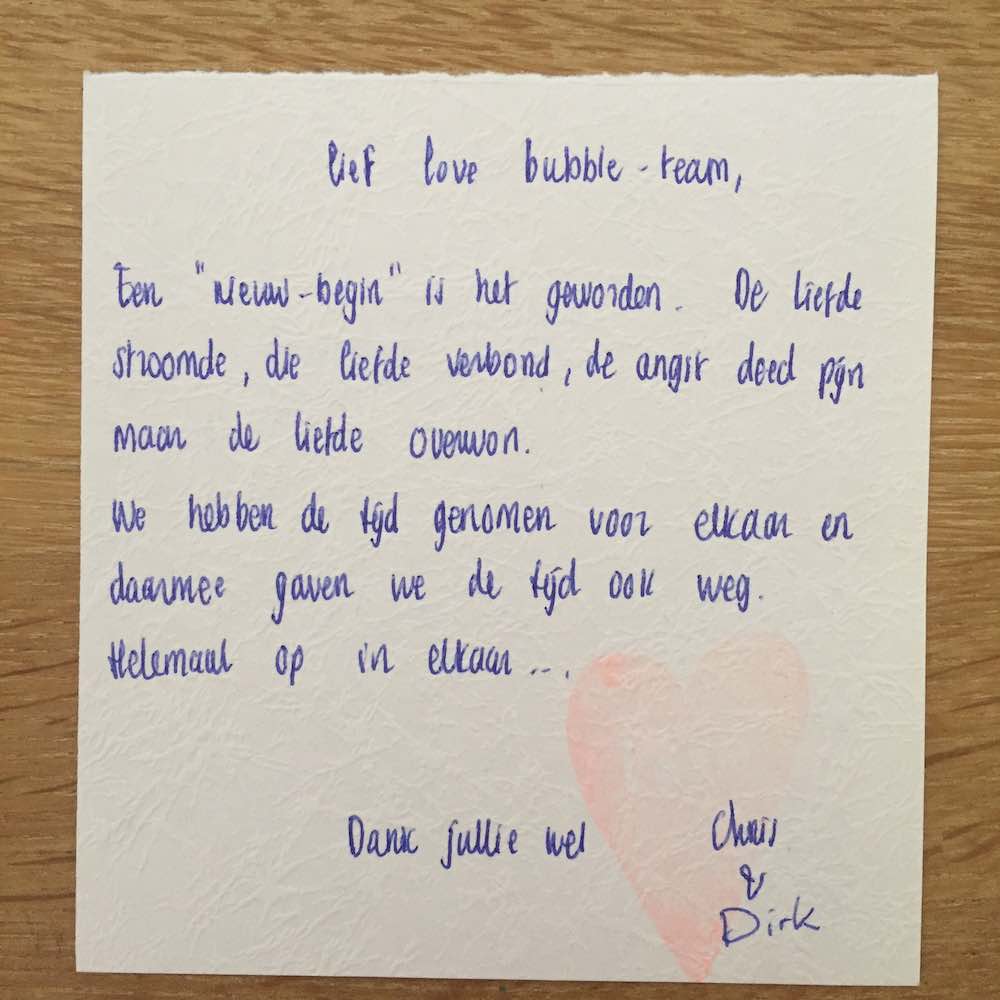 lief love bubble-team,
Een "nieuw-begin" is het geworden. De liefde
stroomde, die liefde verbond, de angst deed pijn
maar de liefde overwon.
We hebben de tijd genomen voor elkaar en
daarmee gaven we de tijd ook weg.
Helemaal op in elkaar...
Dank jullie wel
Chris
&
Dirk